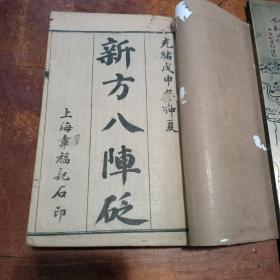 光緒戊申仲夏
新方八陣砭
上海章福記石印